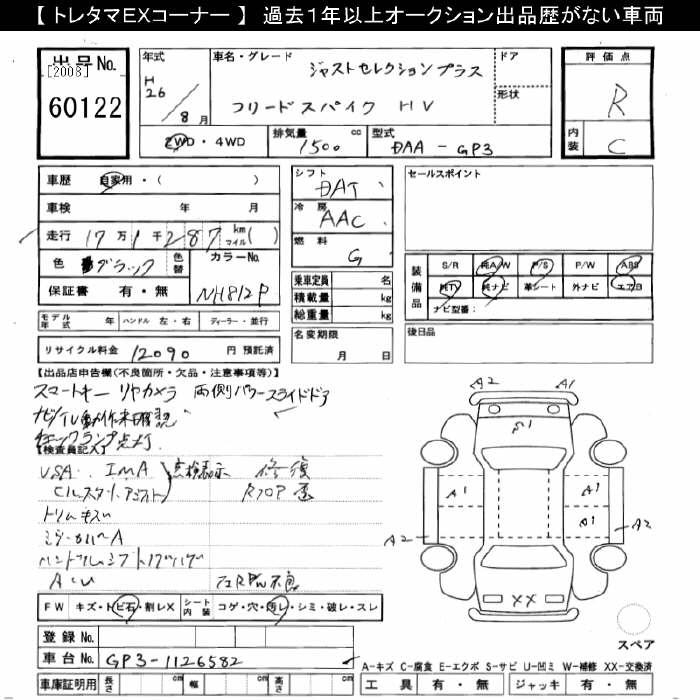 【 トレタマEXコーナー 】 過去1年以上オークション出品歴がない車両
出品No.
[2008]
60122
年式
H
26
8月
車名・グレード
ジャストセレクションプラス
フリードスパイク HV
ドア
形状
評価点
R
内装
C
2WD・4WD
排気量
1500
cc
型式
DAA - GP3
車歴
自家用・( )
車検
年 月
走行
17万1千287
km
マイル( )
色
ブラック
色替
カラーNo.
保証書 有・無
NH812P
シフト
DAT
冷房
AAC
燃料
G
セールスポイント
装備品
S/R 純A/W P/S P/W ABS
純TV 純ナビ 革シート 外ナビ エアB
ナビ型番:
乗車定員 名
積載量 kg
総重量 kg
モデル年式 年 ハンドル 左・右 ディーラー・並行
名変期限
月 日
後日品
リサイクル料金 12090 円 預託済
【出品店申告欄(不良箇所・欠品・注意事項等)】
スマートキー リヤカメラ 両側パワースライドドア
ナビTV動作未確認
チェックランプ点灯
【検査員記入】
VSA. IMA 点検表示 修復
トリムキズ
A C U
FW キズ・トビ石・割レX シート内装 コゲ・穴・汚レ・シミ・破レ・スレ
登録No.
車台No. GP3-1126582
車庫証明用 長さ cm 幅 cm 高さ cm
A2 A1
S1
A1 A1
A1
A2 A2
XX
スペア
A-キズ C-腐食 E-エクボ S-サビ U-凹ミ W-補修 XX-交換済
工具 有・無 ジャッキ 有・無